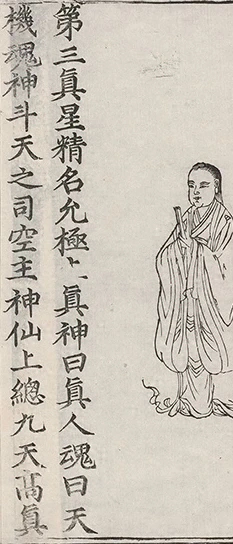 第三真星精名允極上真神曰真人魂曰天
機魂神斗天之司空主神仙上總九天高真